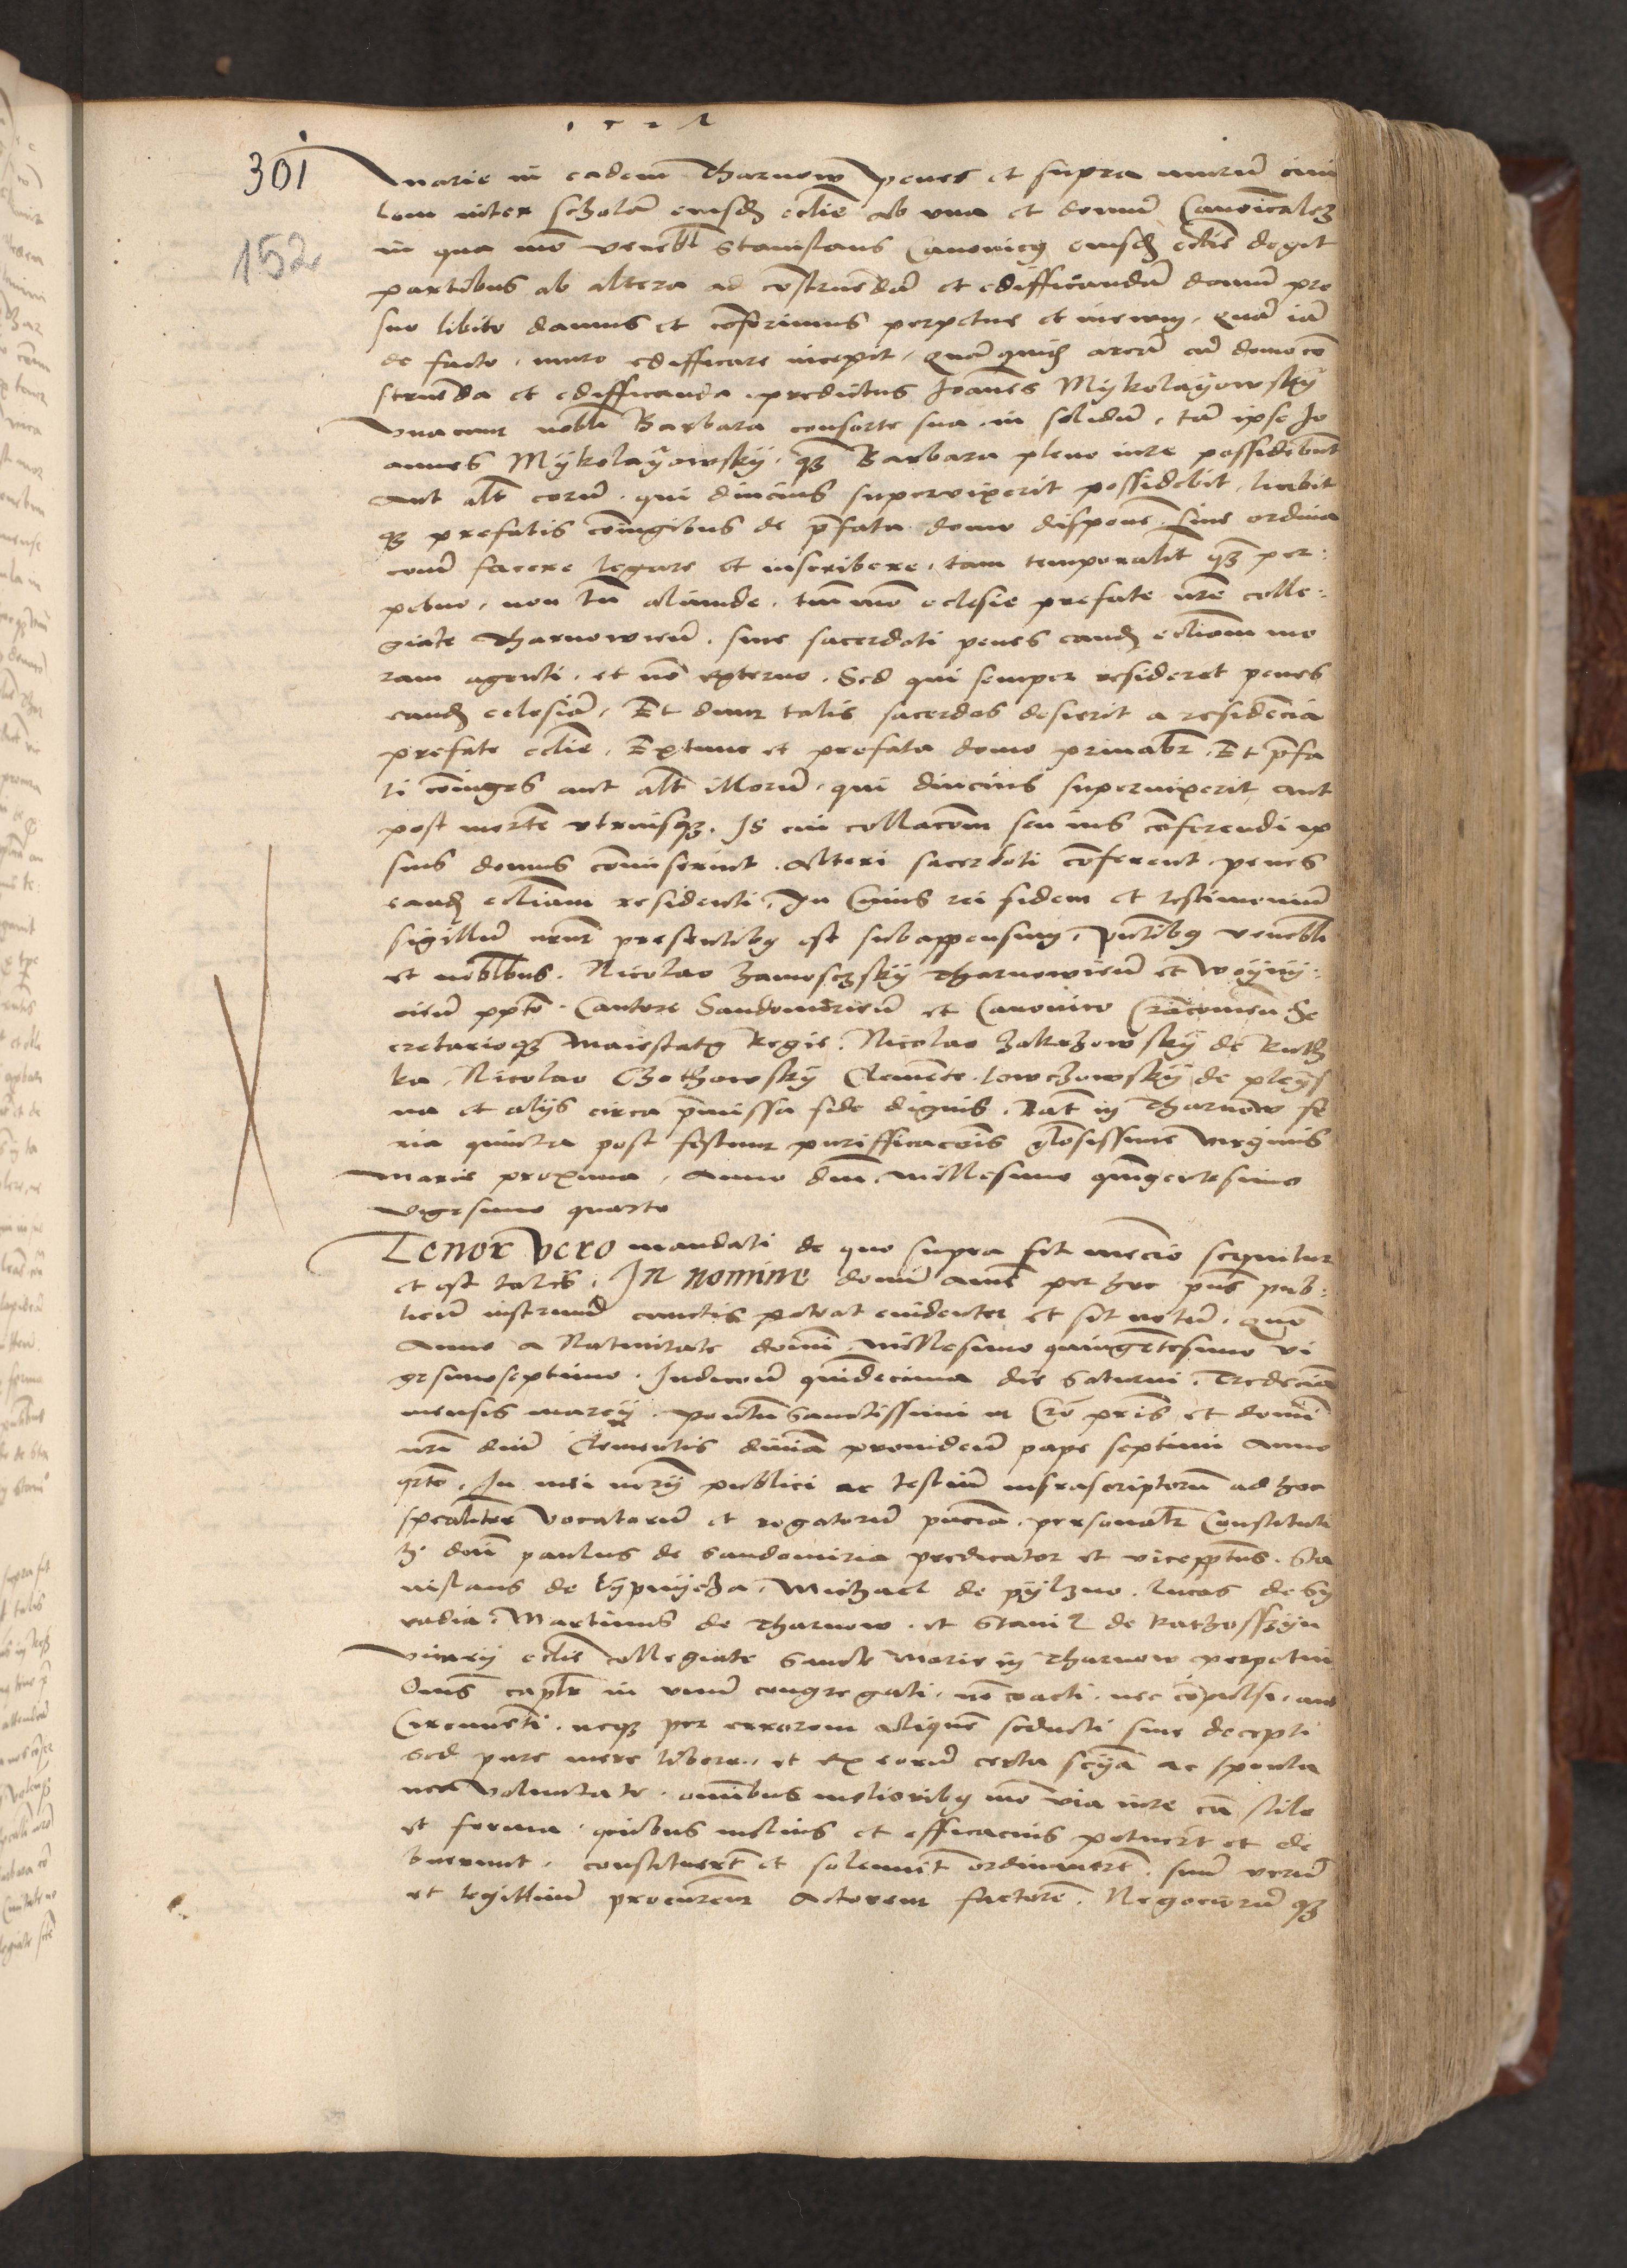 1527
301
152
marie in eadem Tharnow penes et supra murũ civi
lem inter scholã eiusdẽ ecclie ab una et domũ Canõicalẽ
in qua mõ venebl Stanislaus Canonicus eiusdẽ ecclie degit
partibus ab altera ad construendã et edifficandã domũ pro
suo libito damus et conferimus perpetue et in ewm, quã iã
de facto muro edifficare incepit, quã quidẽ areã cũ domo con
struenda et edifficanda predictus Joannes Mykolayowsky
unacum nobli Barbara consorte sua in solidũ, tã ipse Jo
annes Mykolayowsky quã Barbara pleno iure possidebunt
aut altẽ eorũ qui diucius supervixerit possidebit, licebit
qz prefatis coniugibus de pfata domo disponẽ sive ordina
conẽ facere legare et inscribere, tam temporalit qz per:
petuo, non tñ aliunde, tantũmõ eclesie prefate nre colle:
giate Tharnowien, sive sacerdoti penes eandẽ ecliam mo
ram agenti, et nõ externo. Sed qui semper resideret penes
eandẽ eclesiã, Et dum talis sacerdos desierit a residẽcia
prefate eclie, Extunc et prefata domo privabr. Et pfa
ti coniuges aut altẽ illorũ, qui diucius supervixerit aut
post mortẽ utriusqz, Is cui collacõm seu ius conferendi ip
sius domus comiserint, alteri sacerdoti conferent penes
eandẽ ecliam residenti, In Cuius rei fidem et testimoniũ
sigillũ nrum presentibus est subappensum, pntibus venebli
et noblibus Nicolao Zamosczsky Tharnowien et Woyny:
cien ppto Cantore Sandomirien et Canonico Cracovien Se
cretarioqz Maiestatis Regie. Nicolao Zakrzowsky de
ka, Nicolao Chothowsky Clemente Lowczowsky de Pleys
na et alys circa pmissa fide dignis. Dat in Tharnow fe
ria quinta post festum purifficacõis glosissime virginis
marie proxima, Anno dni millesimo quingentesimo
vigesimo quarto
Tenor vero mandati de quo supra fit mencio sequitur
et est talis. In nomine domini amẽ per hoc pns pub:
licũ instrumẽ cunctis pateat evidenter et sit notũ, quod
Anno a Nativitate domini millesimo quingentesimo vi
gesimoseptimo Indicoe quindecima die Saturni, Tredecima
mensis marcy pontus Sanctissimi in Cro pris et domini
nri dni Clementis divina providen pape septimi Anno
qrto. In mei nory publici ac testiũ infrascriptorũ ad hoc
specialiter vocatorũ et rogatorũ pncia personalr Constituti
hon dni Paulus de Sandomiria predicator et vicepptus. Sta
nislaus de Lypnycza, Michael de Pylzno. Lucas de Sy
radia, Martinus de Tharnow et Stanisl de Kathossyn
vicary eclie collegiate Sancte Marie in Tharnow perpetui
Omnes caplr in unũ congregati, nõ coacti nec compulsi, aut
Circumventi neqz per errorem aliquẽ seducti sive decepti
sed pure mere libere et ex eorũ certa scya ac sponta
nea voluntate, omnibus melioribus mo via iure cã stilo
et forma quibus melius et efficacius potuert et de
buerunt, constituert et solennit ordinavert. suũ verũ
et legittimũ procuratorem Actorem factorẽ. Negociorũ qz